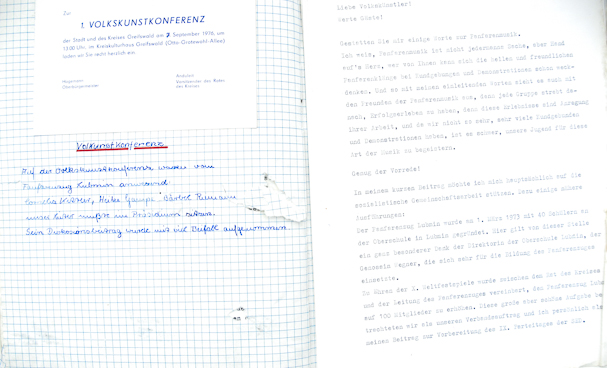 Zur
1. VOLKSKUNSTKONFERENZ
der Stadt und des Kreises Greifswald am 7. September 1976, um
13.00 Uhr, im Kreiskulturhaus Greifswald (Otto-Grotewohl-Allee)
laden wir Sie recht herzlich ein.
Oberbürgermeister
Vorsitzender des Rates
des Kreises
Volkunstkonferenz
Auf der Volkskunstkonferenz waren vom
Fanfarenzug Lubmin anwesend
Bärbel
unser Leiter mußte ins Präsidium
Sein Diskussionsbeitrag wurde mit viel Beifall aufgenommen.
Liebe Volkskünstler!
Werte Gäste!
Gestatten Sie mir einige Worte zur Fanfarenmusik.
Ich weis, Fanfarenmusik ist nicht jedermanns Sache, aber Hand
auf's Herz, wer von Ihnen kann sich die hellen und freundlichen
Fanfarenklänge bei Kundgebungen und Demonstrationen schon weg-
denken. Und es mit meinen einleitenden Worten
den Freunden der Fanfarenmusik von, denn jede Gruppe strebt da-
nach, Erfolgserleben zu haben, denn diese Erlebnisse sind Anregung
ihrer Arbeit, und da wir nicht so sehr viele Kundgebungen
und Demonstrationen haben, ist es schwer, unsere Jugend für diese
Art der Musik zu begeistern.
Genug der Vorrede!
In meinem kurzen Beitrag möchte ich mich hauptsächlich auf die
sozialistische Gemeinschaftsarbeit stützen. Dazu einige andere
Ausführungen:
Der Fanfarenzug Lubmin wurde am 1. März 1973 mit 40 Schülern an
der Oberschule in Lubmin gegründet. Hier gilt von dieser Stelle
ein ganz besonderer Dank der Direktorin der Oberschule Lubmin, der
Genossin Wegner, die sich sehr für die Bildung des Fanfarenzuges
einsetzte.
Zu Ehren der X. Weltfestspiele wurde zwischen dem Rat des Kreises
und der Leitung des Fanfarenzuges vereinbart, den Fanfarenzug Lubmin
auf 100 Mitglieder zu erhöhen. Diese große aber schöne Aufgabe be-
trachteten wir als unseren Verbandsauftrag und ich persönlich als
meinen Beitrag zur Vorbereitung des IX. Parteitages der SED.